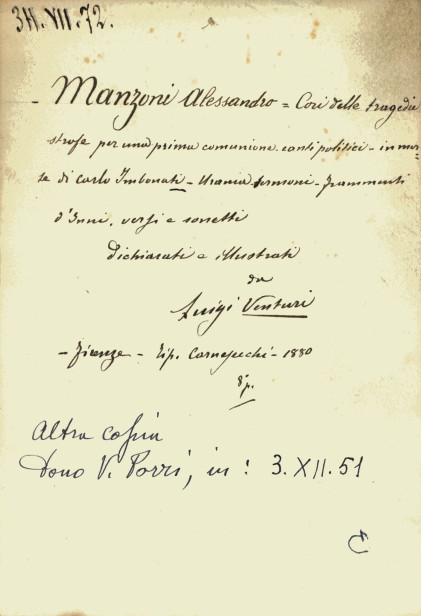 3H.VII.72.
- Manzoni Alessandro = Cori delle tragedie
strofe per una prima comunione. canti politici - in mor-
te di Carlo Imbonati - Urania sermoni - frammenti
d'Inni, versi e sonetti
dichiarati e illustrati
da
Luigi Venturi
- Firenze - Tip. Carnesecchi - 1880
8º p.
Altra copia
Dono V. Porri, in: 3.XII.51